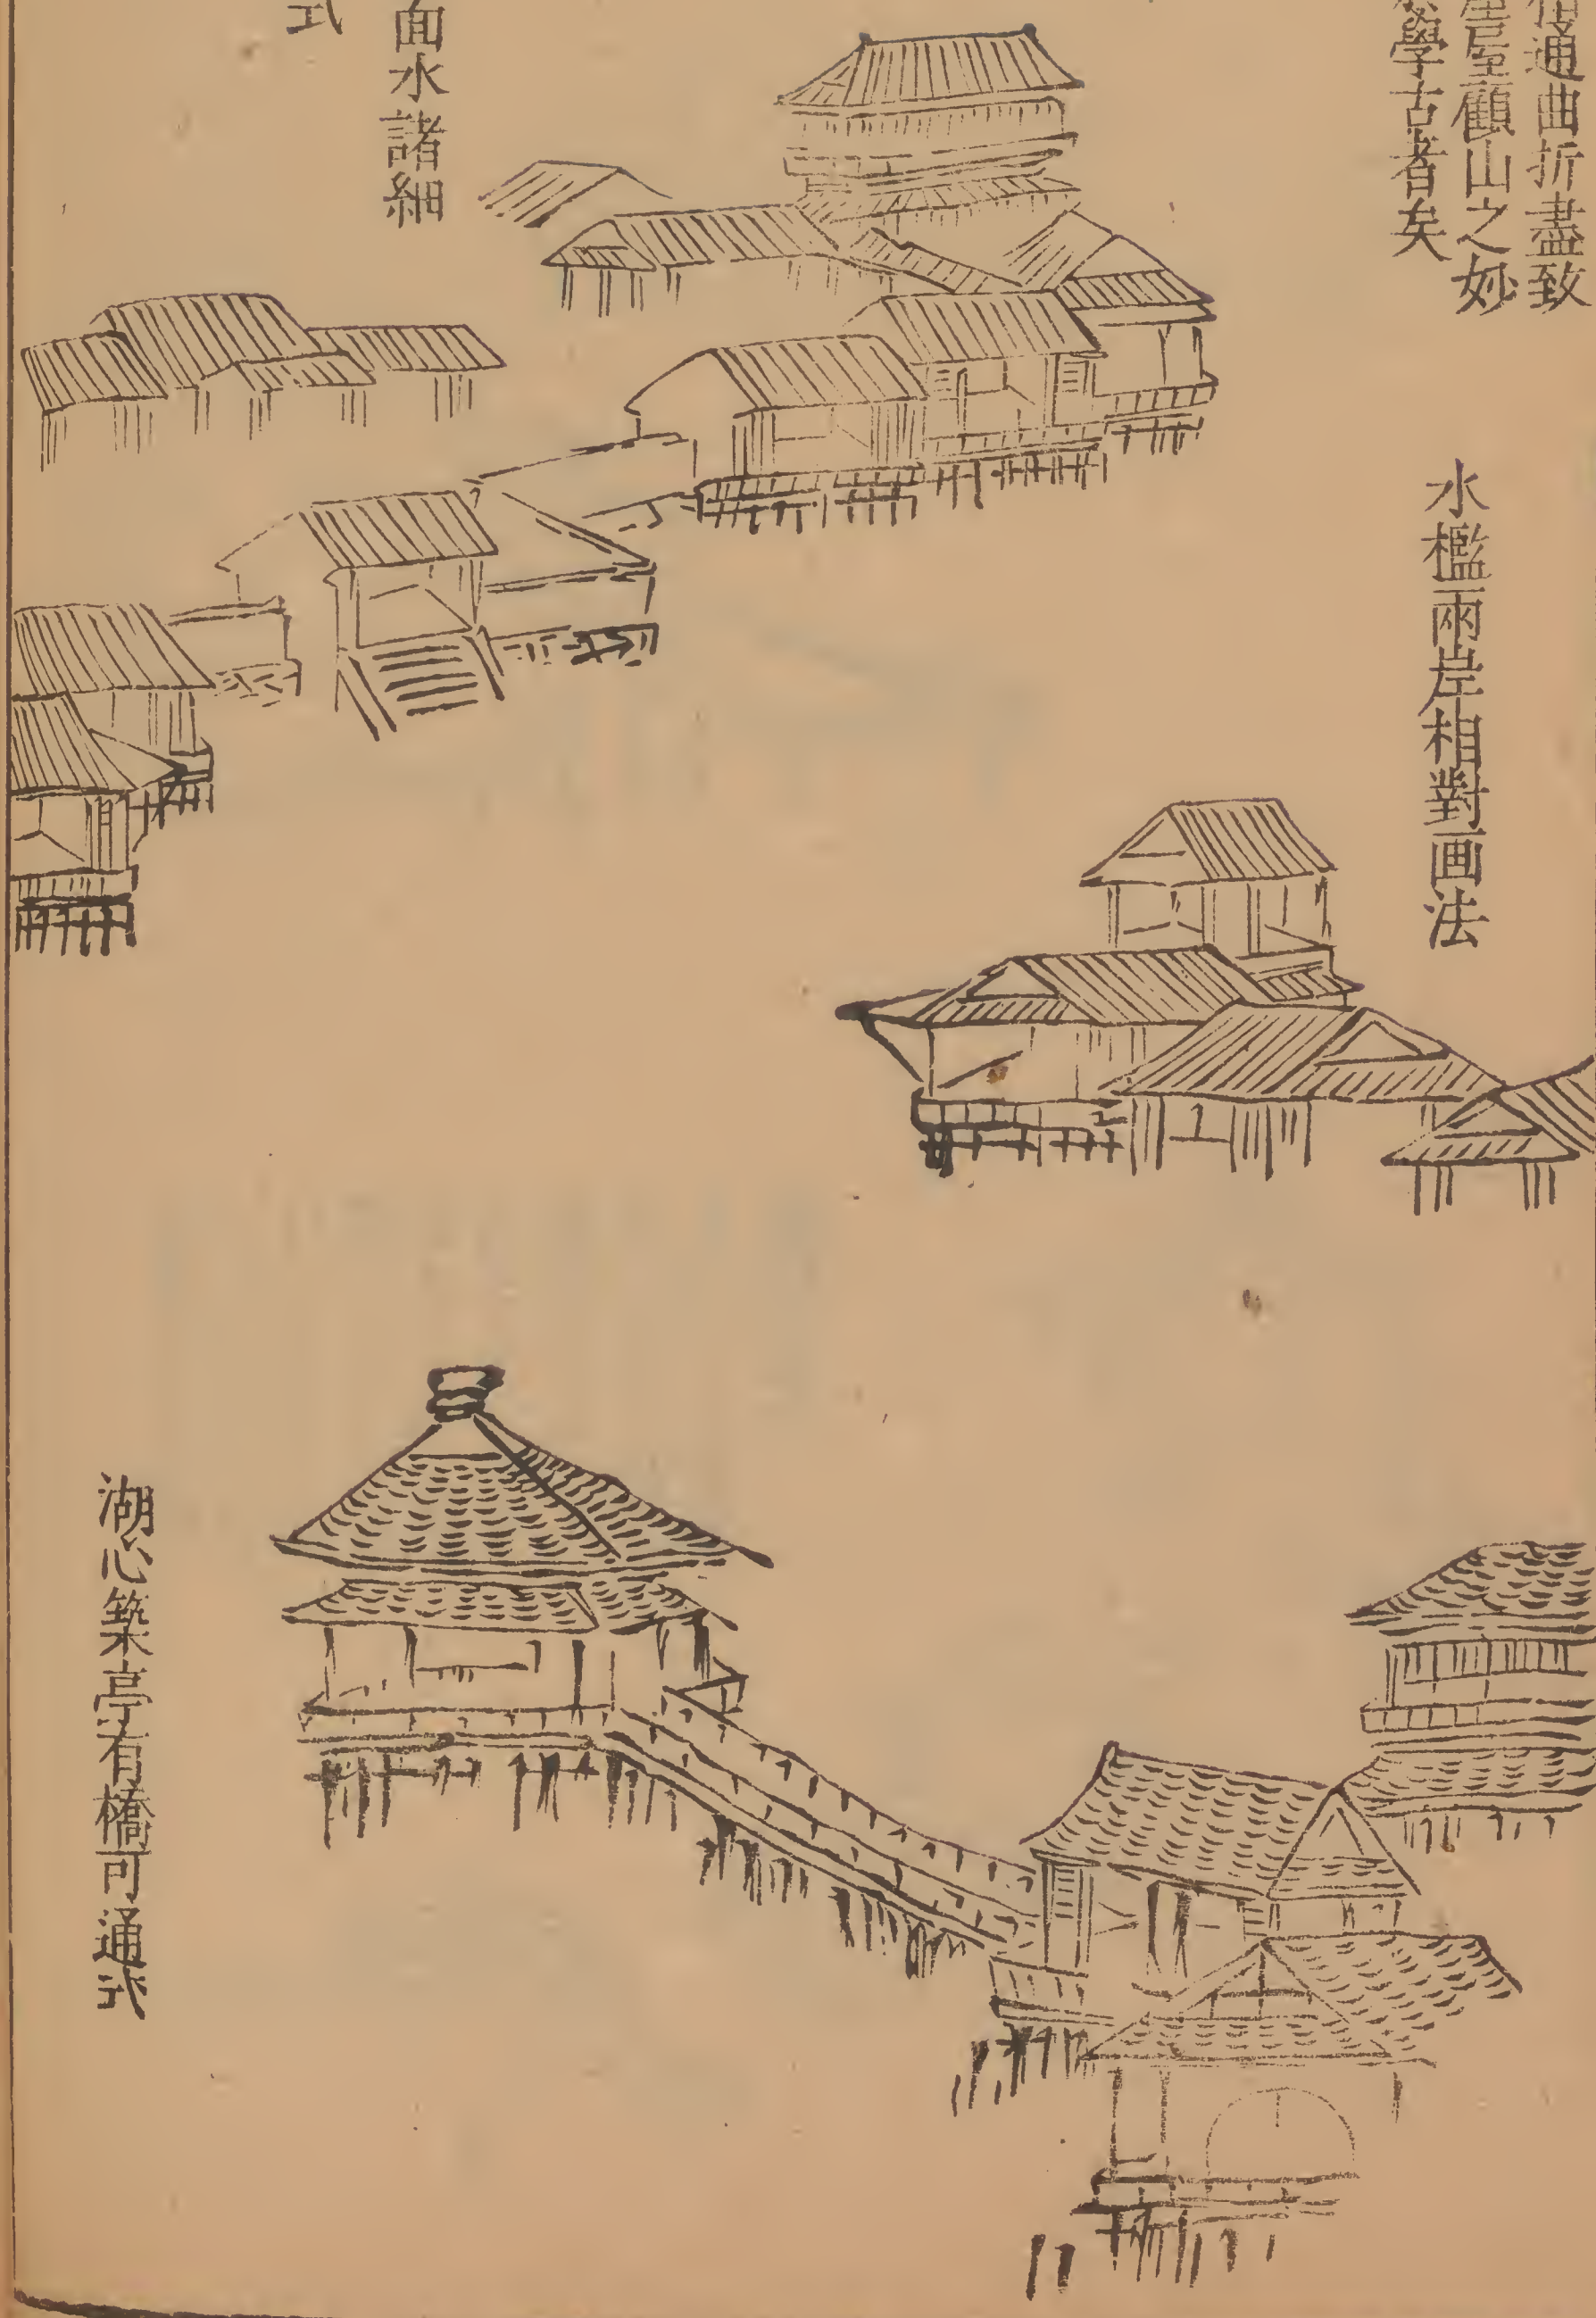 通曲折盡致
屋顧山之妙
學古者矣
水檻兩岸相對画法
面水諸細
式
湖心築亭有橋可通式